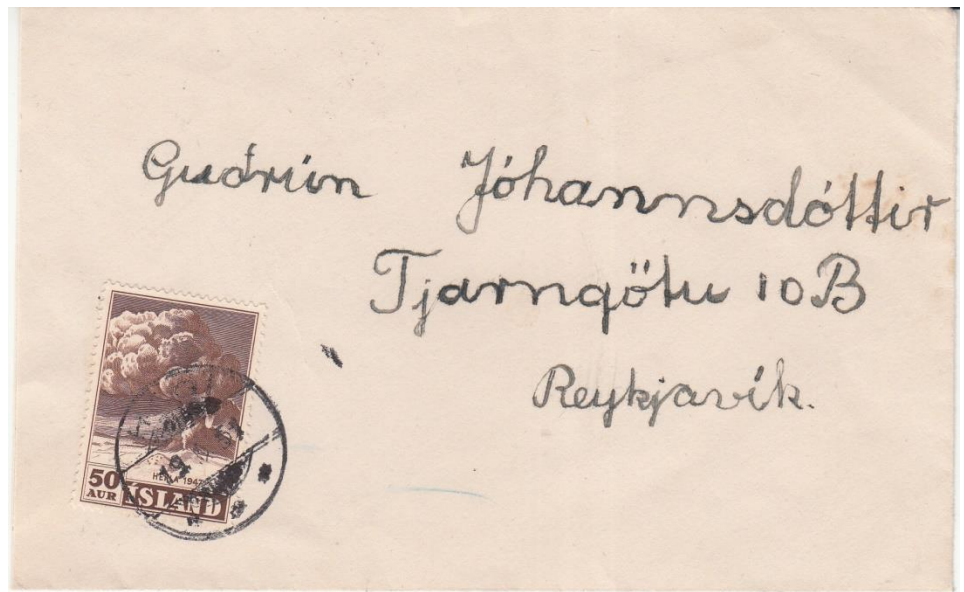 Guđrún Jóhannsdóttir
Tjarngötu 10B
Reykjavík.
HEKLA 1947
50
AUR ÍSLAND
19